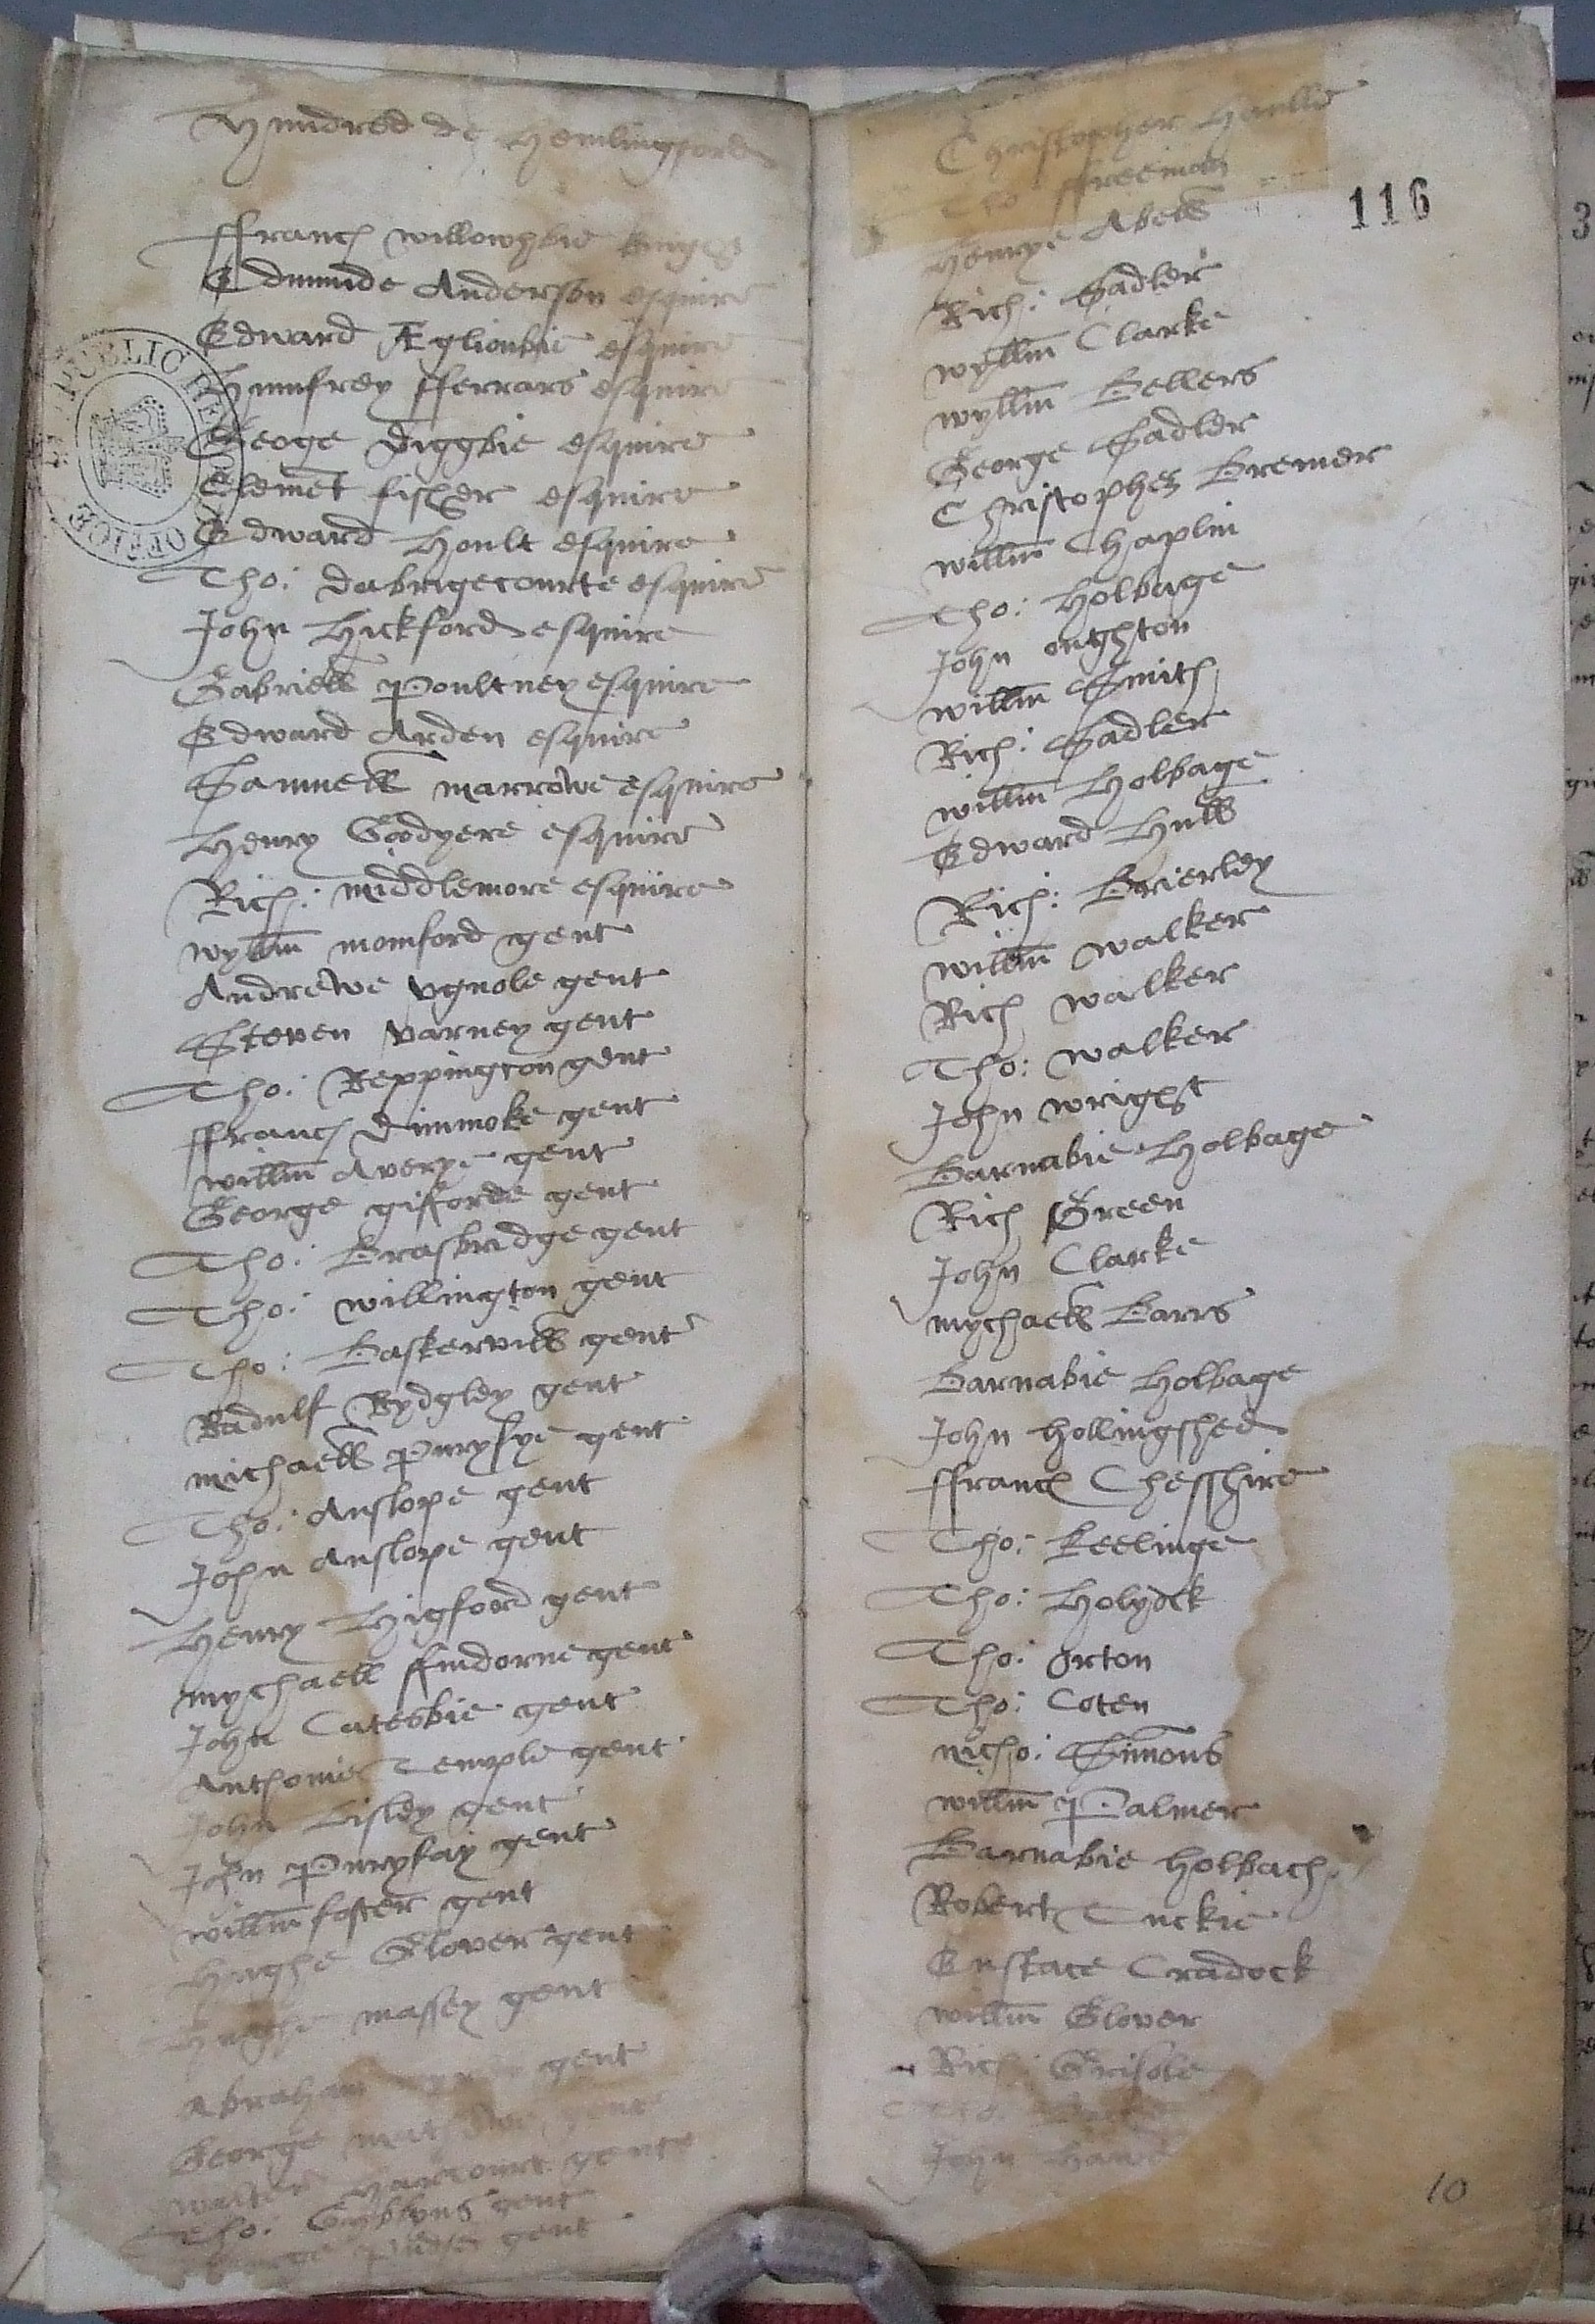 Hundred de Hemlingford
ffranc willowghbie knyght
Edmunde Anderson esquire
Edward Æglionbie esquire
Humfrey fferrars esquire
Geoge Diggbie esquire
Clemēt fisher esquire
Edward Hoult esquire
Tho: dabrigecourte esquire
John Hickford esquire
Gabriell Poultney esquire
Edward Arden esquire
Samuell marrowe esquire
Henry Goodyere esquire
Rich: middlemore esquire
wyllm momford gent
Andrewe vgnole gent
Steven varney gent
Tho: Reppington gent
ffranc Dimmoke gent
willm Averye gent
George gifforde gent
Tho: Brasbridge gent
Tho: willington gent
Tho: Baskervill gent
Radulf Rydgley gent
michaell Puryfye gent
Tho: Anslope gent
John Anslope gent
Henry Higford gent
mychaell ffindorne gent
John Catesbie gent
Anthonie Temple gent
John Lisley gent
John Puryfay gent
willm foster gent
Hughe Glover gent
Hughe massey gent
Abraham gent
George gent
walter Harcourt gent
Tho: Gybbyns gent
gent
Christopher Haulle
Tho ffreeman
Henrye Abell
Rich: Sadler
wyllm Clarke
wyllm Bellers
George Sadler
Christopher Bremer
willm Chaplin
Tho: Holbage
John oughton
willm Smith
Rich: Sadler
willm Holbage
Edward Hull
Rich: Brierley
willm walker
Rich walker
Tho: walker
John wright
Barnabie Holbage
Rich Green
John Clarke
mychaell Barrs
Barnabie Holbage
John hollingshed
ffranc Chesshire
Tho: Keelinge
Tho: Holyock
Tho: Orton
Tho: Coten
Nicho: Simons
willm Palmer
Barnabie holbach
Robert Tuckie
Eustace Cradock
willm Glover
Rich: Grisole
John
116
10
PUBLIC RECORD OFFICE